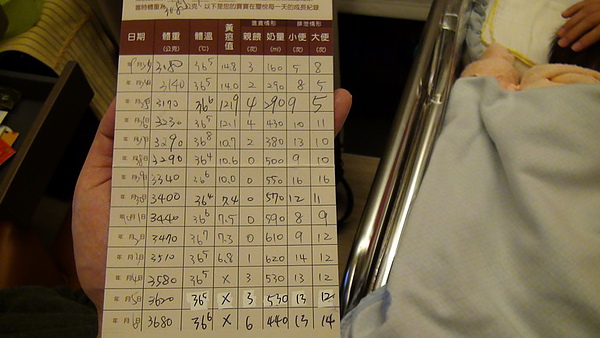 公克，以下是您的寶寶在璽悅每一天的成長紀錄
日期 體重(公克) 體溫(℃) 黃疸值 進食情形 親餵(次) 奶量(次) 排泄情形 小便(次) 大便(次)
年 月 日 3180 36⁵ 14.8 3 160 5 8
年 月 日 3140 36⁵ 14.0 2 290 8 5
年 月 日 3170 36⁶ 12.9 4 290 9 5
年 月 日 3230 36⁵ 12.1 4 430 10 11
年 月 日 3290 36⁸ 10.7 2 380 13 10
年 月 日 3290 36⁴ 10.6 0 500 9 10
年 月 日 3340 36⁶ 10.0 0 550 16 16
年 月 日 3400 36⁴ 7.4 0 570 12 11
年 月 日 3440 36⁶ 7.5 0 590 8 9
年 月 日 3470 36⁷ 7.3 0 610 9 12
年 月 日 3510 36⁵ 6.8 1 620 14 12
年 月 日 3580 36⁵ X 3 530 13 12
年 月 日 3620 X 3 530 13 12
年 月 日 3680 36⁶ X 6 440 13 14